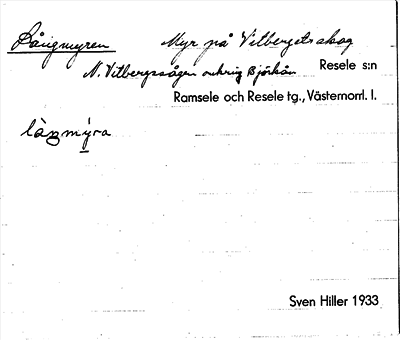 Långmyren Myr på Vitbergets skog
N. Vitbergssågen omkring Björkån Resele s:n
Ramsele och Resele tg., Västernorrl. l.
làŋmýra
Sven Hiller 1933